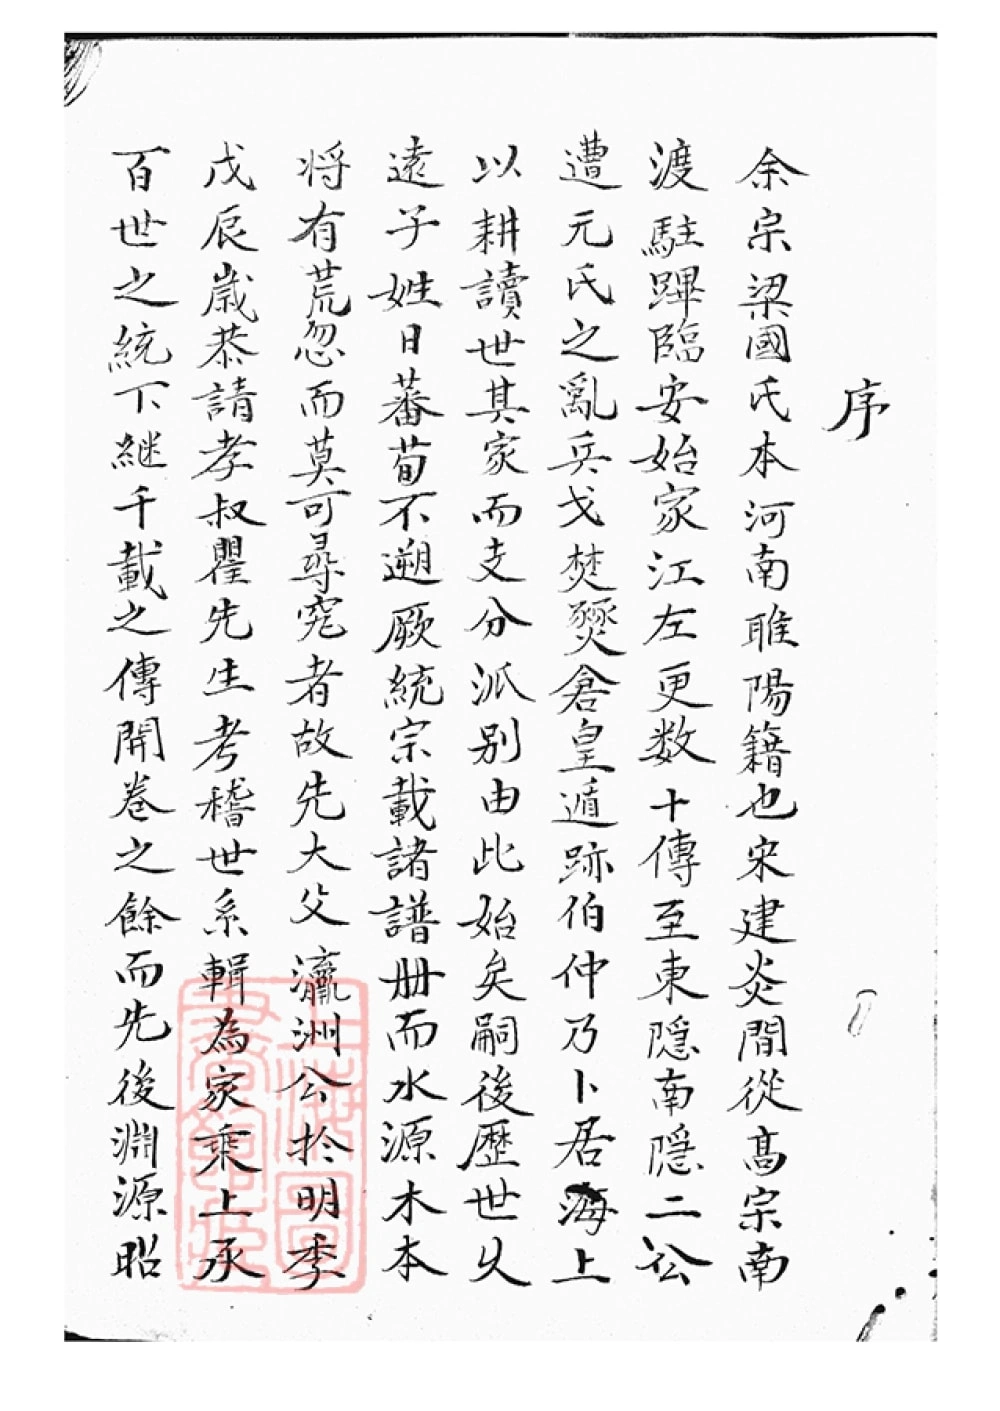 序
余宗梁國氏本河南睢陽籍也宋建炎間從髙宗南
渡駐蹕臨安始家江左更数十傳至東隠南隠二公
遭元氏之亂兵戈焚燹倉皇遁跡伯仲乃卜居海上
以耕讀世其家而支分派別由此始矣嗣後歴世乆
遠子姓日蕃荀不遡厥統宗載諸譜册而水源木本
将有荒忽而莫可尋究者故先大父瀛洲公扵明季
戊辰嵗恭請孝叔瞿先生考稽世系輯為家乘上承
百世之統下継千載之傳開卷之餘而先後淵源昭
上海圖書館藏